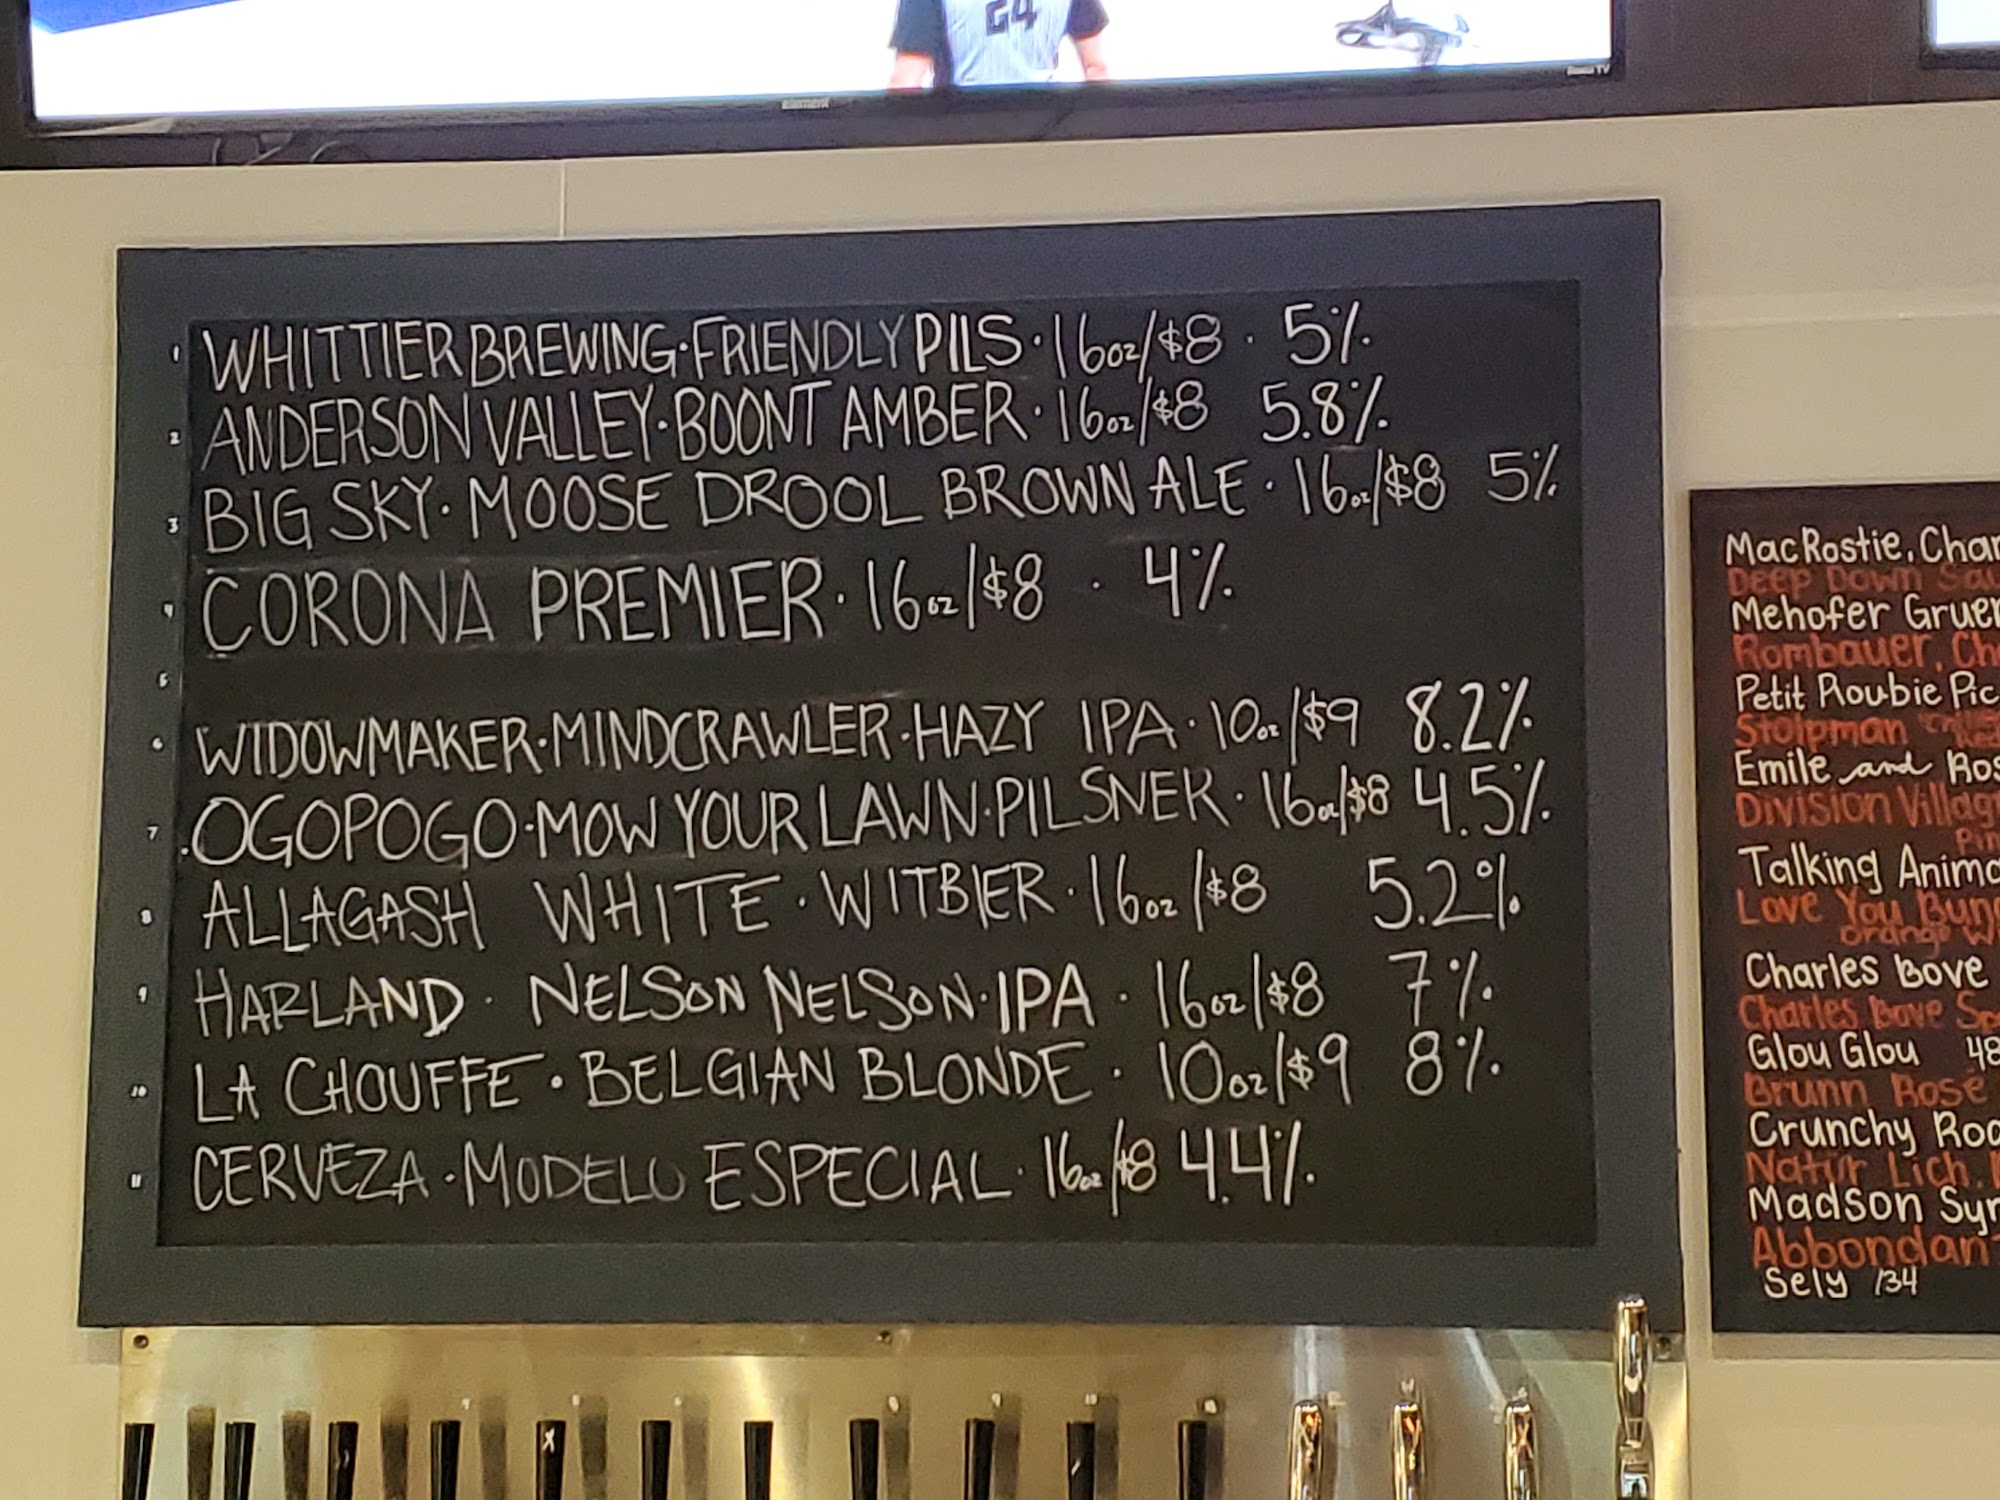 24
Roku TV
1 WHITTIER BREWING · FRIENDLY PILS · 16oz/$8 · 5%
2 ANDERSON VALLEY · BOONT AMBER · 16oz/$8 5.8%
3 BIG SKY · MOOSE DROOL BROWN ALE · 16oz/$8 5%
4 CORONA PREMIER · 16oz/$8 · 4%
5
6 WIDOWMAKER · MINDCRAWLER · HAZY IPA · 10oz/$9 8.2%
7 OGOPOGO · MOW YOUR LAWN · PILSNER · 16oz/$8 4.5%
8 ALLAGASH WHITE · WITBIER · 16oz/$8 5.2%
9 HARLAND · NELSON NELSON · IPA · 16oz/$8 7%
10 LA CHOUFFE · BELGIAN BLONDE · 10oz/$9 8%
11 CERVEZA · MODELO ESPECIAL · 16oz/$8 4.4%
MacRostie, Char
Deep Down Sau
Mehofer Gruen
Rombauer, Cha
Petit Roubie Pic
Stolpman
Emile and Ros
Division Villag
Pin
Talking Anima
Love You Bun
orange Wi
Charles Bove
Charles Bove Sp
Glou Glou 48
Brunn Rosé
Crunchy Roa
Natur Lich.
Madson Syr
Abbondan
Sely 134